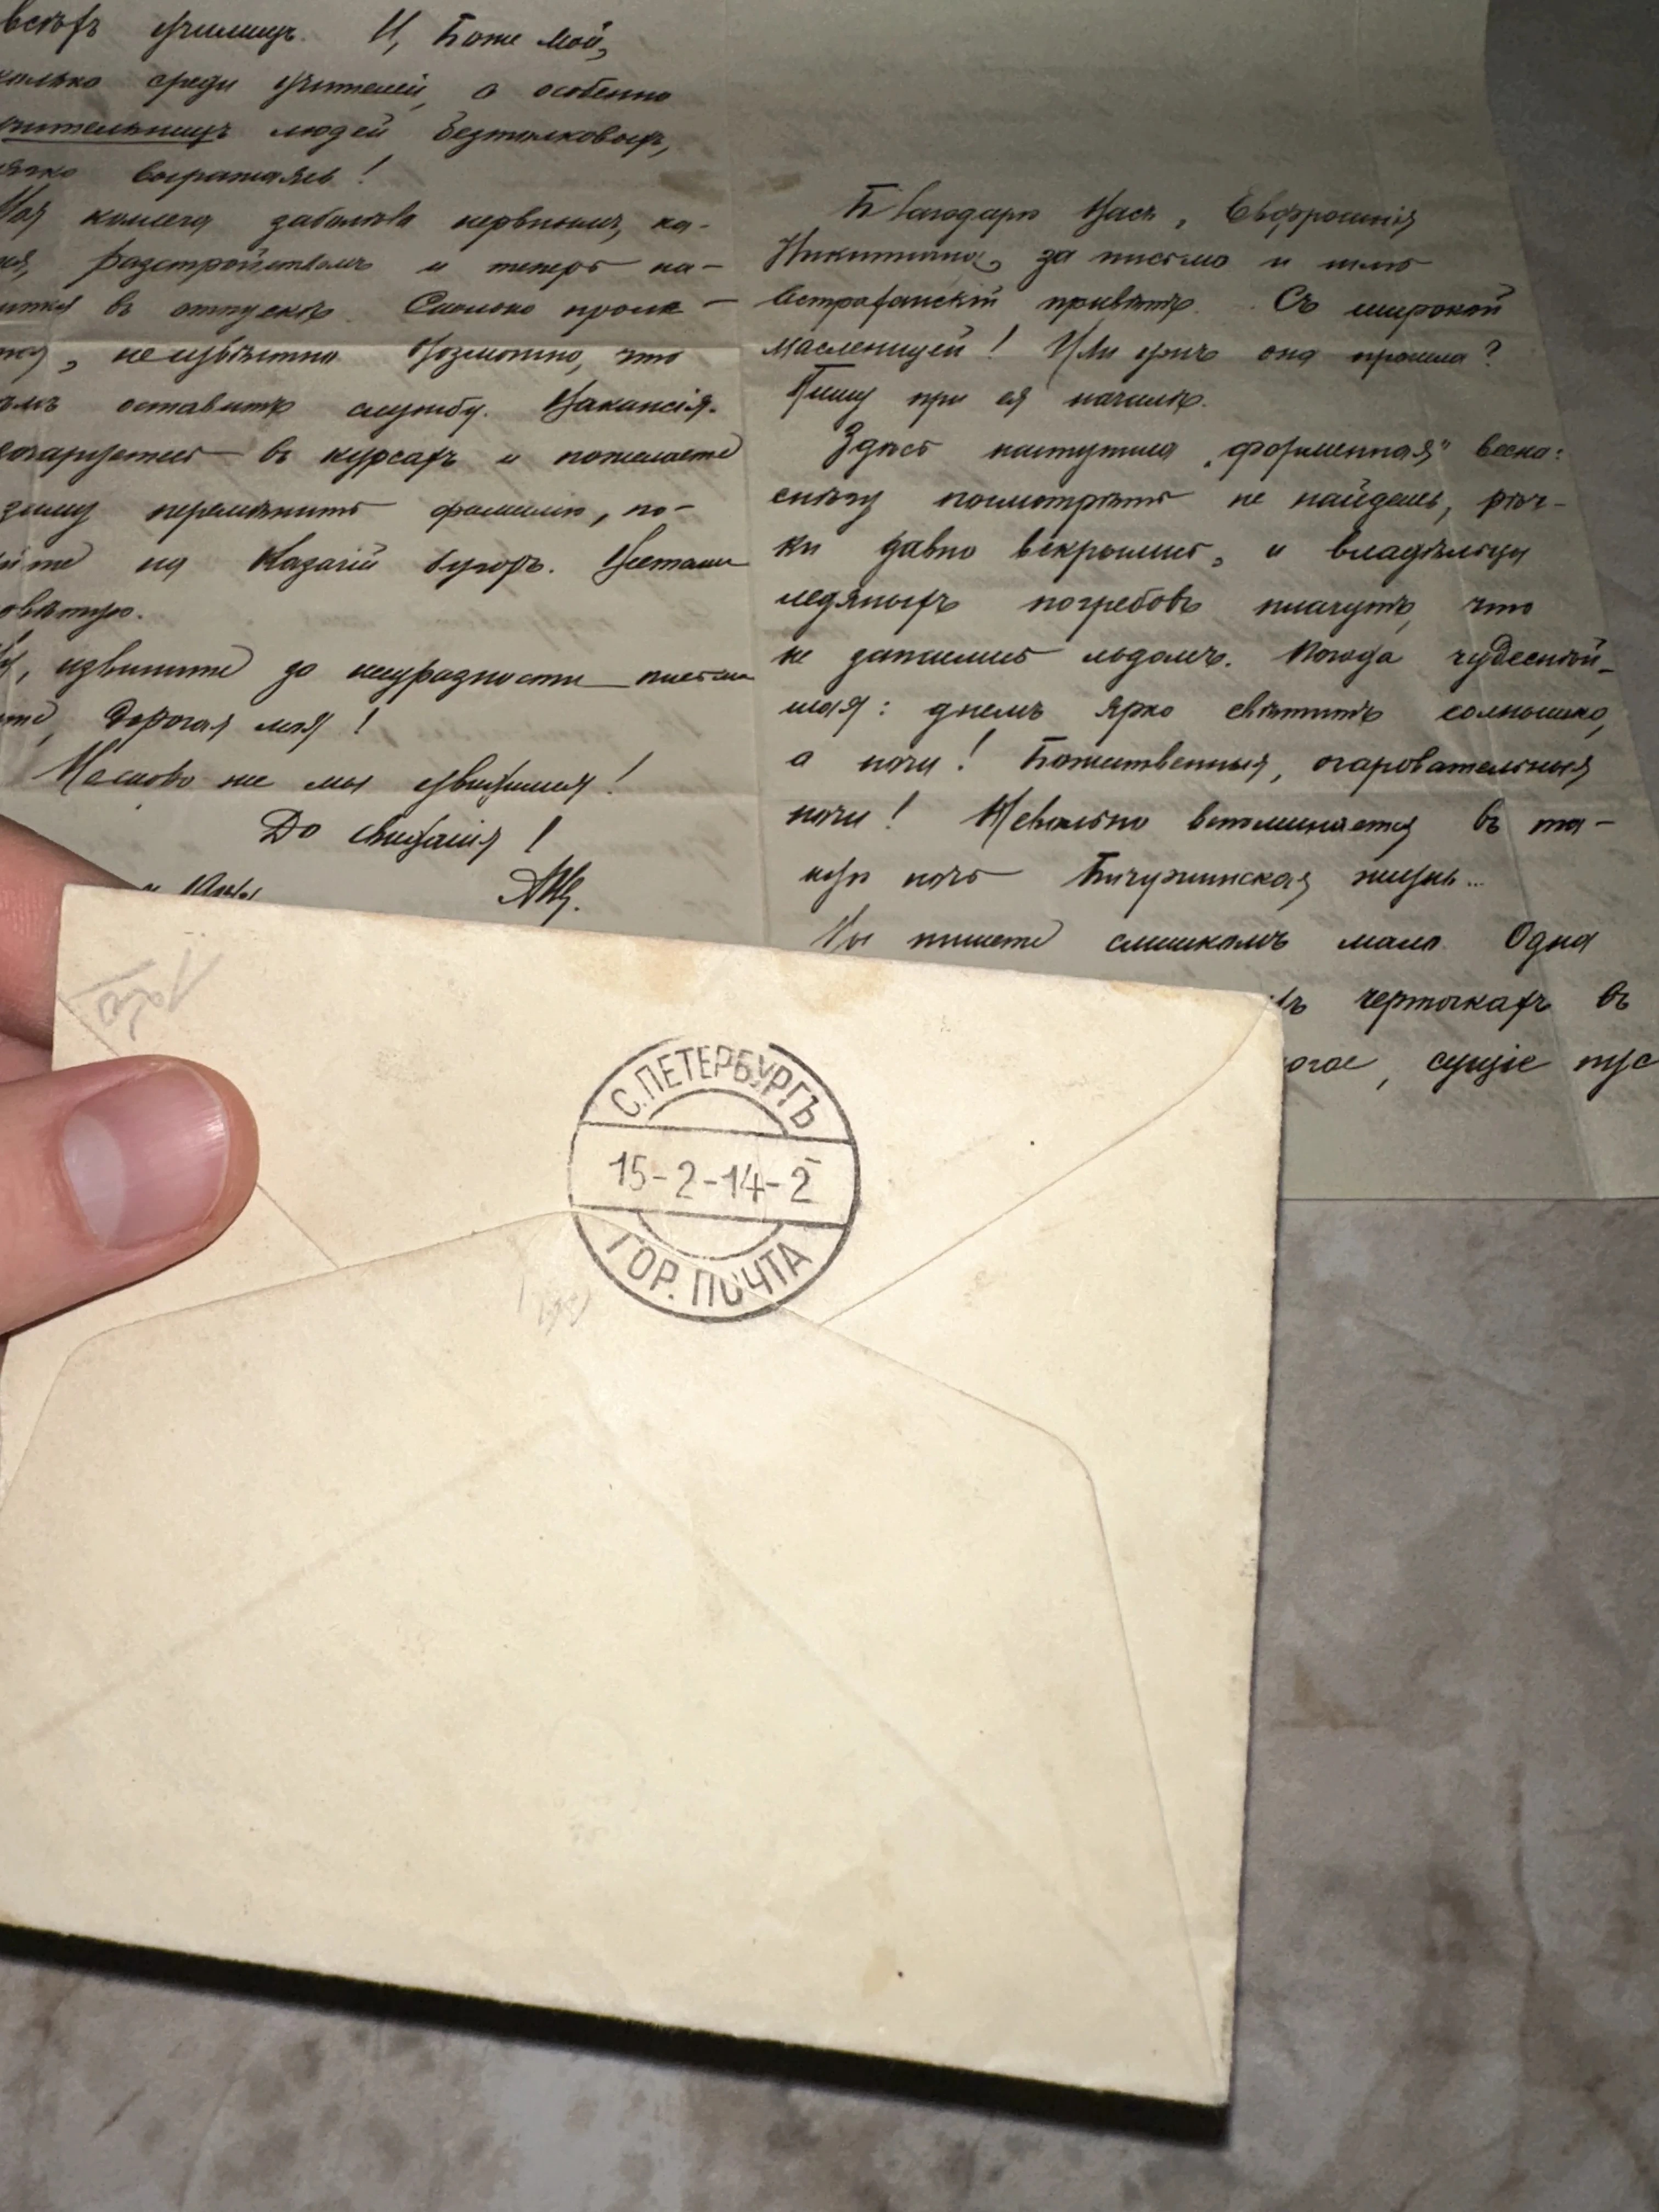 всѣхъ училищъ. И, Боже мой,
сколько среди учителей, а особенно
учительницъ людей безтолковыхъ,
мягко выражаясь!
Моя коллега заболѣла нервнымъ, ка-
разстройствомъ и теперь на-
въ отпуску. Сколько прокa-
неизвѣстно. Возможно, что
оставитъ службу. Вакансія.
въ курсахъ и пожелаете
перемѣнить фамилію, по-
на Казачій бугоръ.
извините за неуразности письма
дорогая моя!
Каково же мы увидимся!
До свиданія!
Благодарю Васъ, Евфросинія
Никитична, за письмо и шлю
астраханскій привѣтъ. Съ широкой
масленицей! Или ужъ она прошла?
Пишу при ея началѣ.
Здѣсь наступила „форменная" весна:
снѣгу посмотрѣть не найдешь, рѣч-
ки давно вскрылись, и владѣльцы
ледяныхъ погребовъ плачутъ, что
не запаслись льдомъ. Погода чудеснѣй-
шая: днемъ ярко свѣтитъ солнышко,
а ночи! Божественныя, очаровательныя
ночи! Невольно вспоминается въ та-
кую ночь Бичуринская жизнь...
Вы пишете слишкомъ мало. Одна
черточкахъ въ
сущіе пус
С.ПЕТЕРБУРГЪ
15-2-14-2
ГОР. ПОЧТА